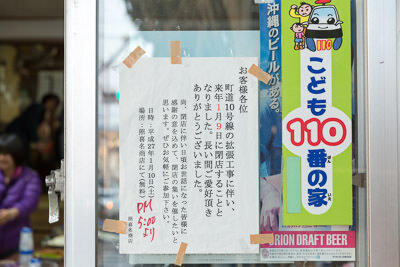 お客様各位
町道10号線の拡張工事に伴い、
来年1月9日に閉店することと
なりました。長い間ご愛好頂き
ありがとうございました。
尚、閉店に伴い日頃お世話になった皆様に
感謝の意を込めて、閉店の集いを催したいと
思います。ぜひお気軽にご参加下さい。
日時：平成27年1月10日(土)
場所：照喜名商店にて(無料)
PM
5:00
より
照喜名商店
沖縄のビールがある。
110
こども
110
番の家
いえ
RION DRAFT BEER